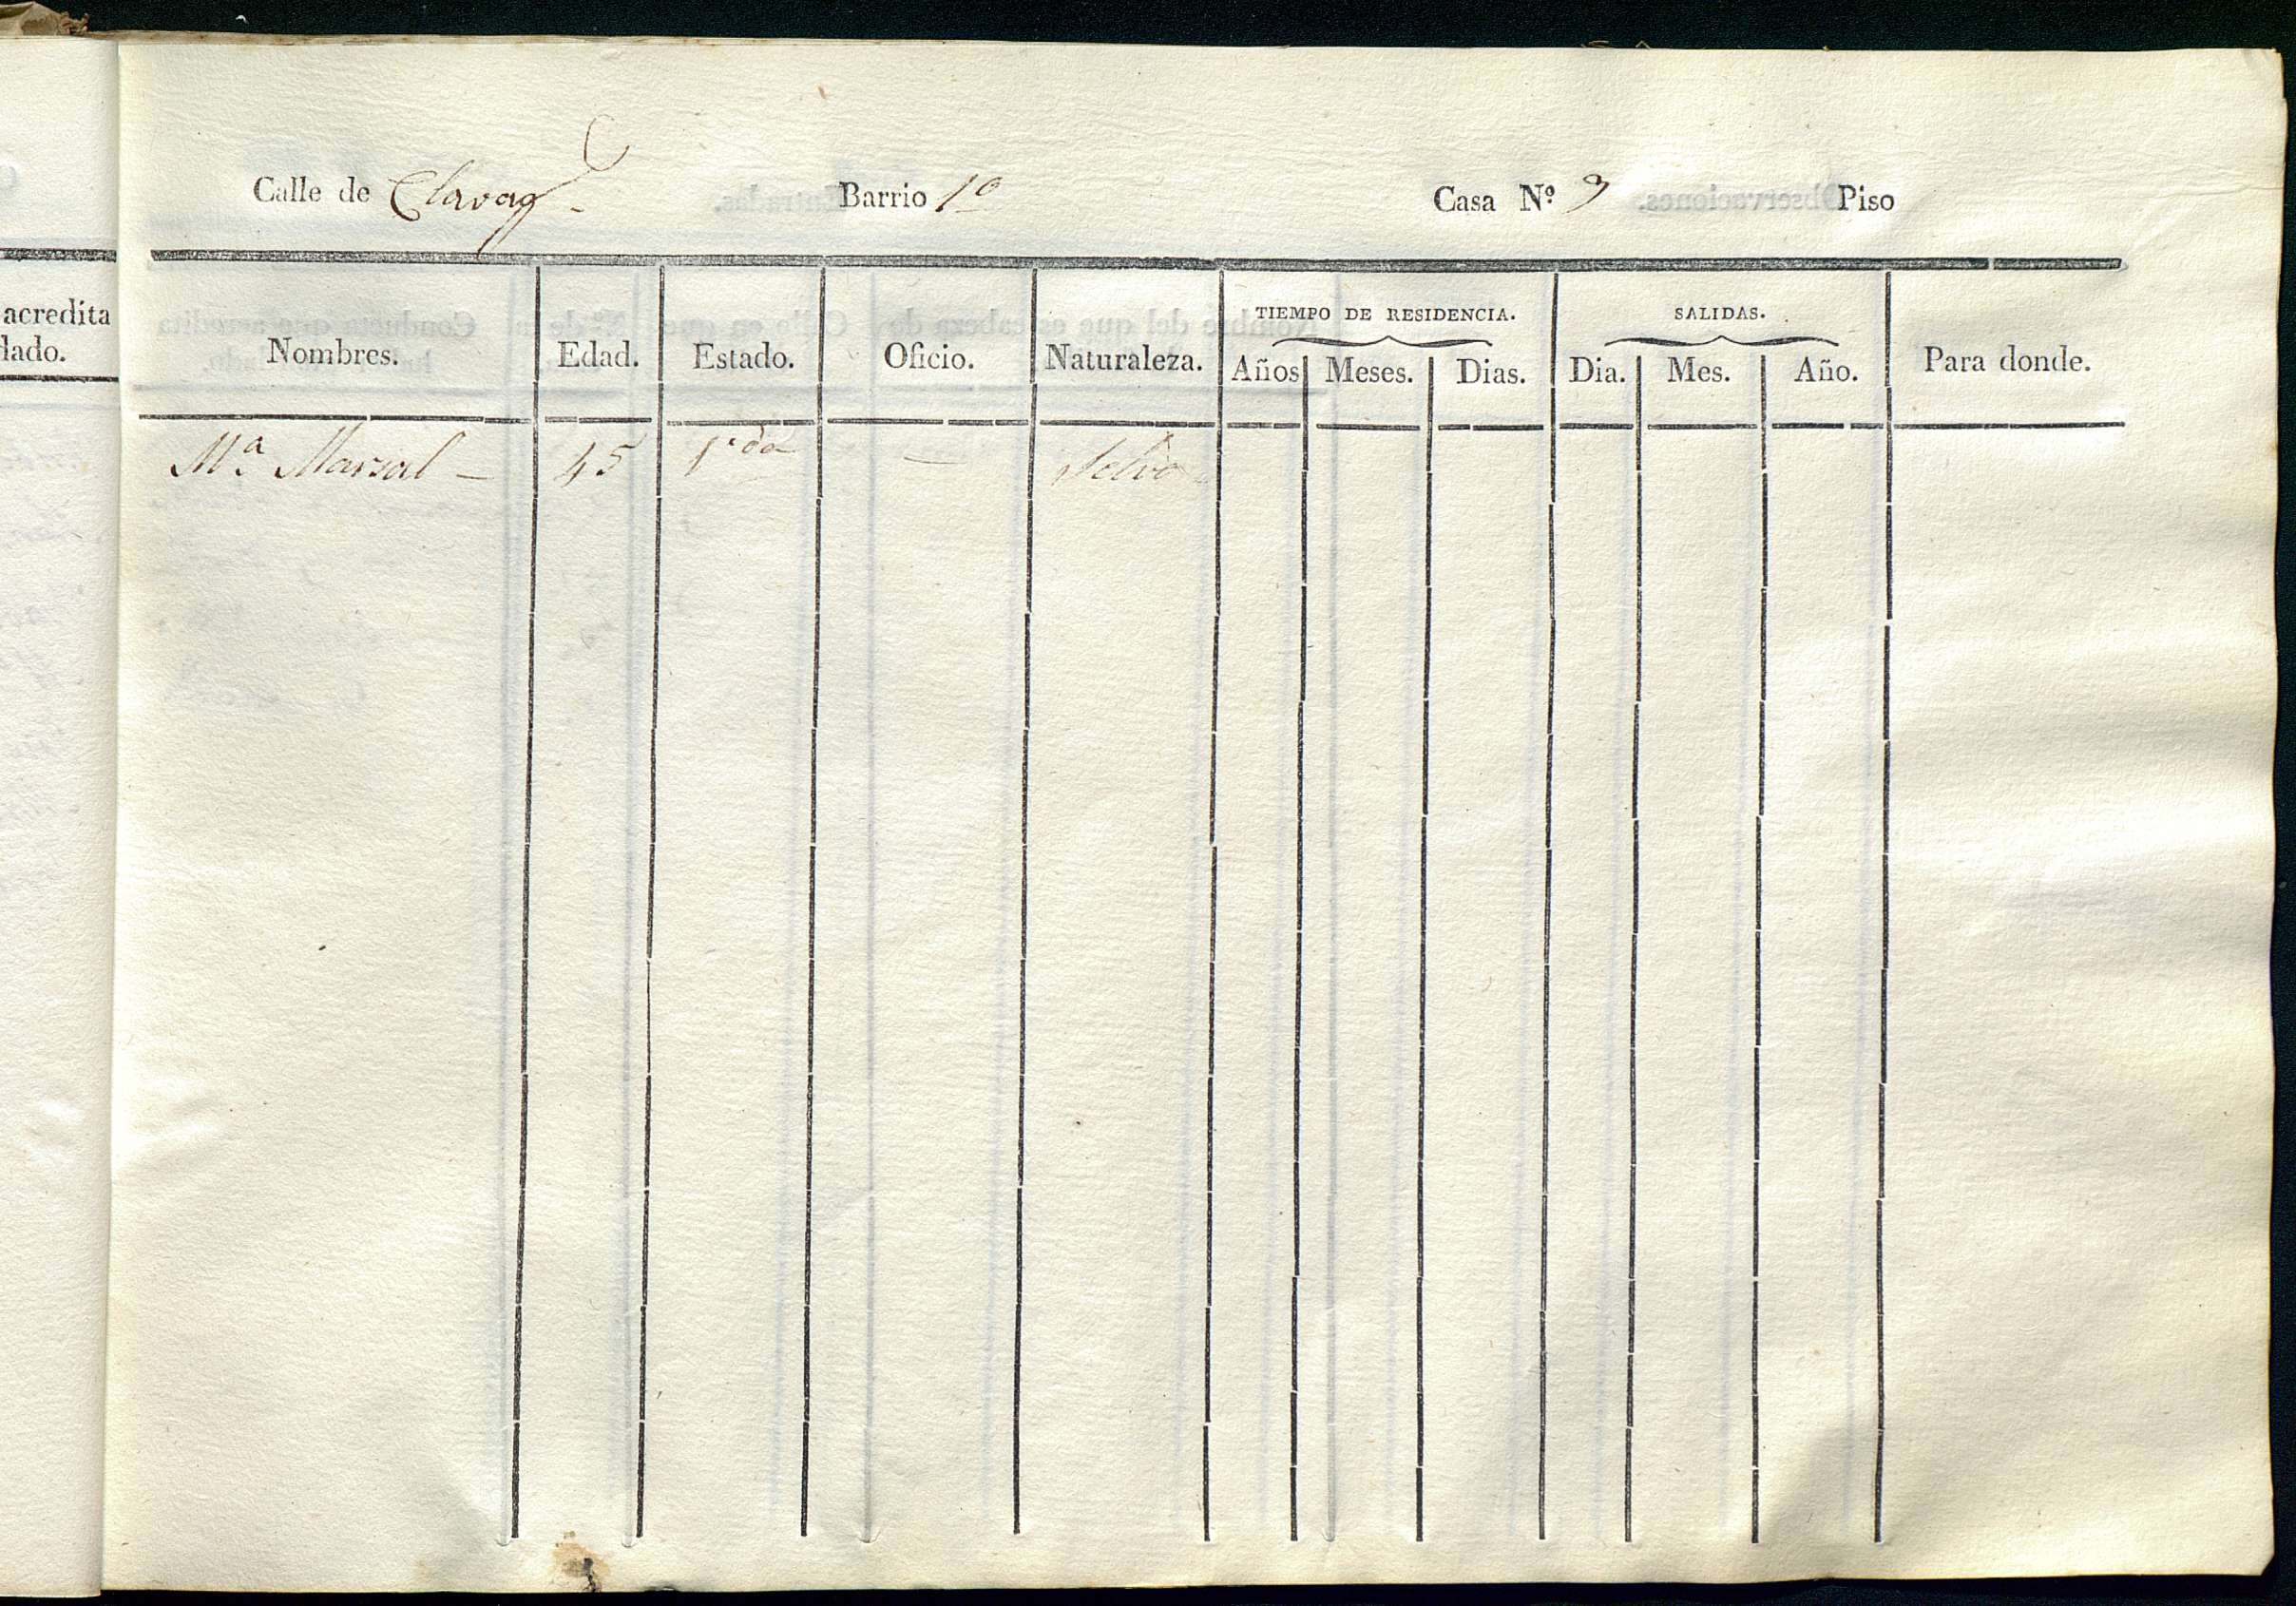 Calle de Barrio 1º Casa Nº 9 Piso
acredita
lado.
TIEMPO DE RESIDENCIA. SALIDAS.
Nombres. Edad. Estado. Oficio. Naturaleza. Años Meses. Dias. Dia. Mes. Año. Para donde.
Mª Marsal — 45 — Selva